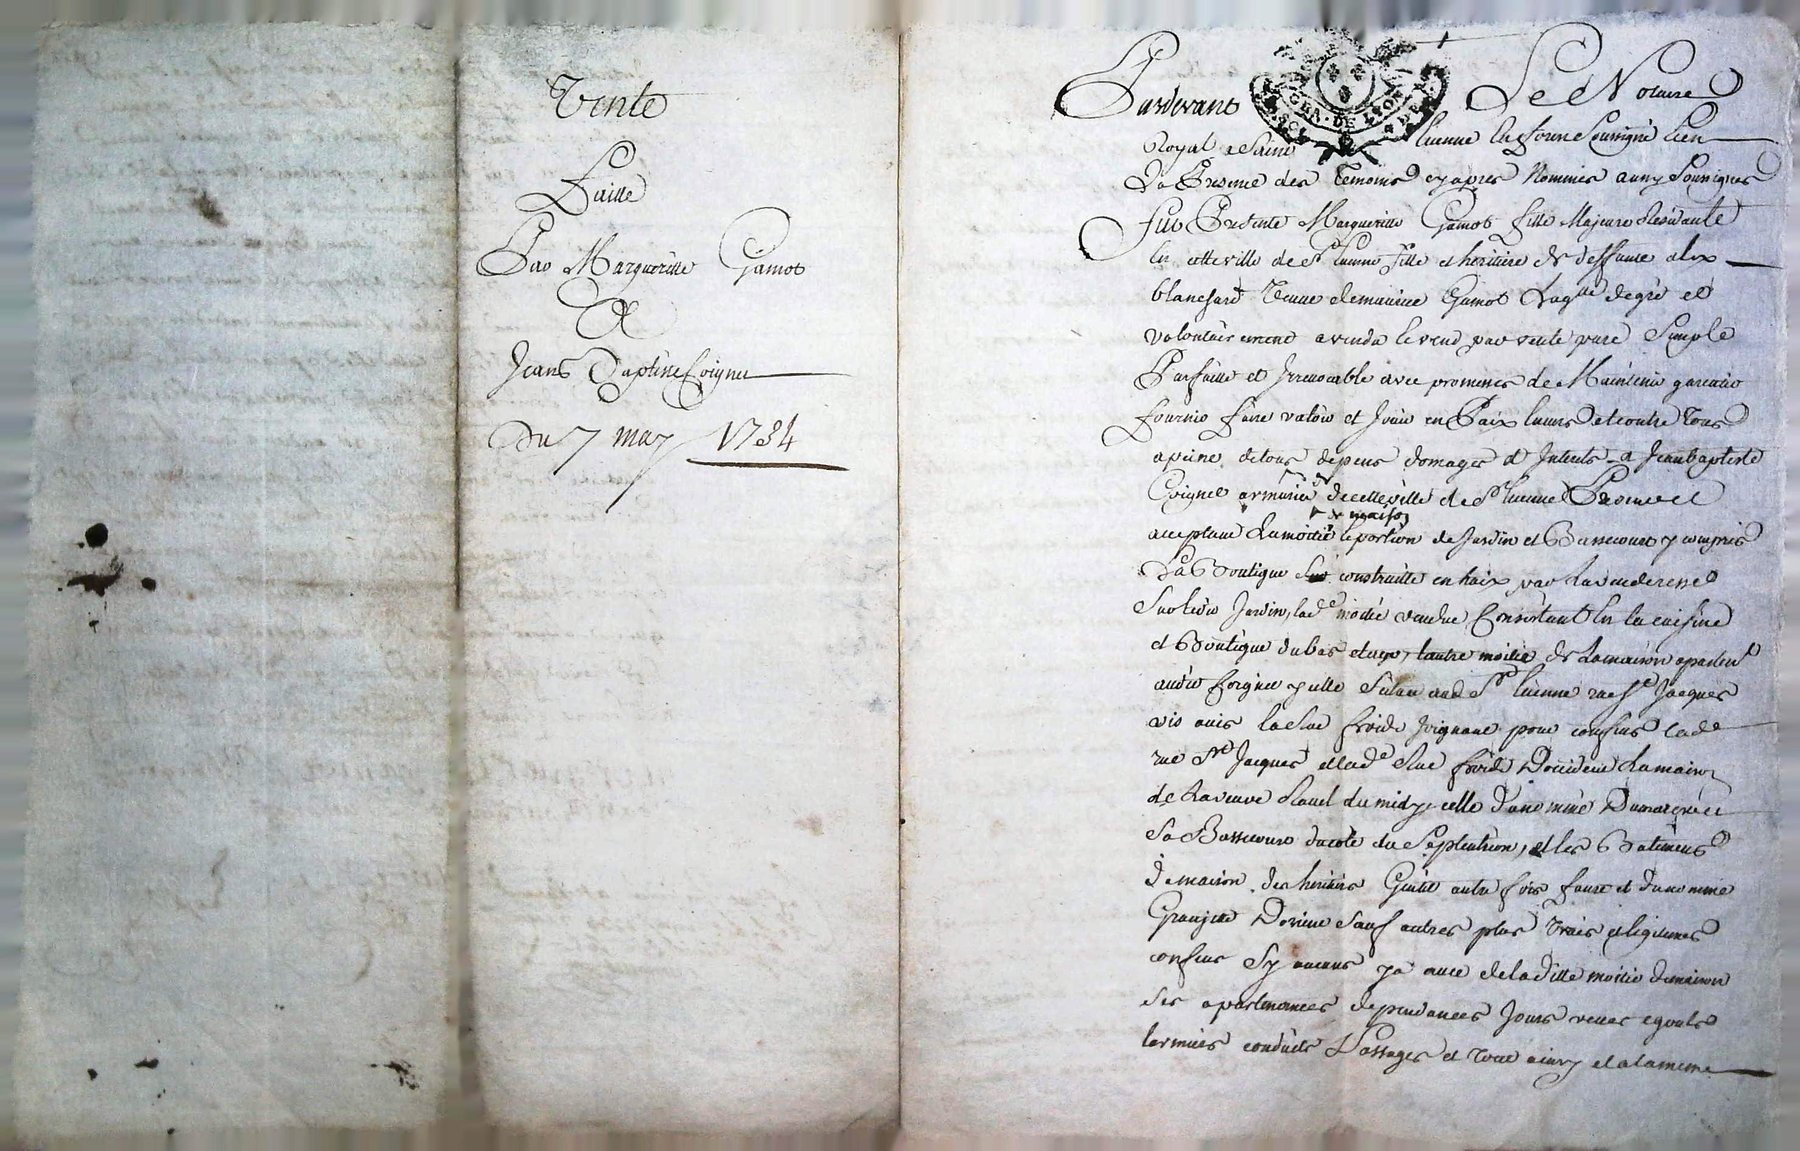 Vente
Faitte
Par Margueritte Gamot
A
Jean Baptiste Coignet
Du 7 may 1734
GEN. DE LYON
Pardevant Le Notaire
Royal a Saint Etienne en forest soussigné Et en
La Presence des temoins cy apres Nommés aussy soussignes
fut Presente Margueritte Gamot fille Majeure Residante
En cette ville de St Etienne fille et heritiere de deffunte
blanchard veuve de maurice Gamot Laquelle de gré et
volontairement a vendu et vend par vente pure Simple
Parfaitte et Irrevocable avec promesses de Maintenir garentir
fournir faire valoir et Jouir en Paix Envers et contre tous
a peine de tous depens domages et Interets a Jean baptiste
Coignet armurier de cette ville de St Etienne Present et
de maison
acceptant La moitié et portion de Jardin et Bassecourt y compris
La Boutique construitte en haix par La venderesse
Sur ledit Jardin, lade moitié vendue Consistant En la cuisine
et Boutique du bas, l'autre moitié de La maison apartent
audit Coignet situee aud St Etienne rue St Jacques
vis avis la rue froide Joignant pour confins lade
rue St Jacques et lade rue froide D'occident La maison
de La veuve du midy, celle d'un nommé
Sa Bassecour du coté du Septentrion, et les Batiments
de maison des heritiers autre fois faure et d'un nommé
Granjon D'orient Sauf autres plus vrais et legitimes
confins Sy aucuns y a avec de la ditte moitié de maison
Ses apartenances dependances Jours veues egouts
larmiers conduits Passages et tout ainsy et a la meme